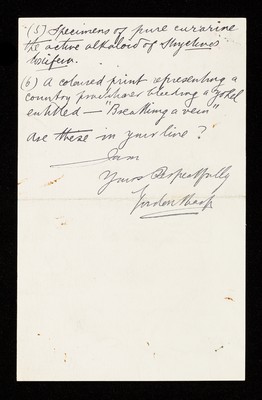 (5) Specimens of pure curarine
the active alkaloid of Strychnos
toxifera.
(6) A coloured print representing a
country practioner bleeding a yokel
entitled — "Breathing a vein"
Are these in your line?
I am
Yours Respectfully
Gordon Sharp